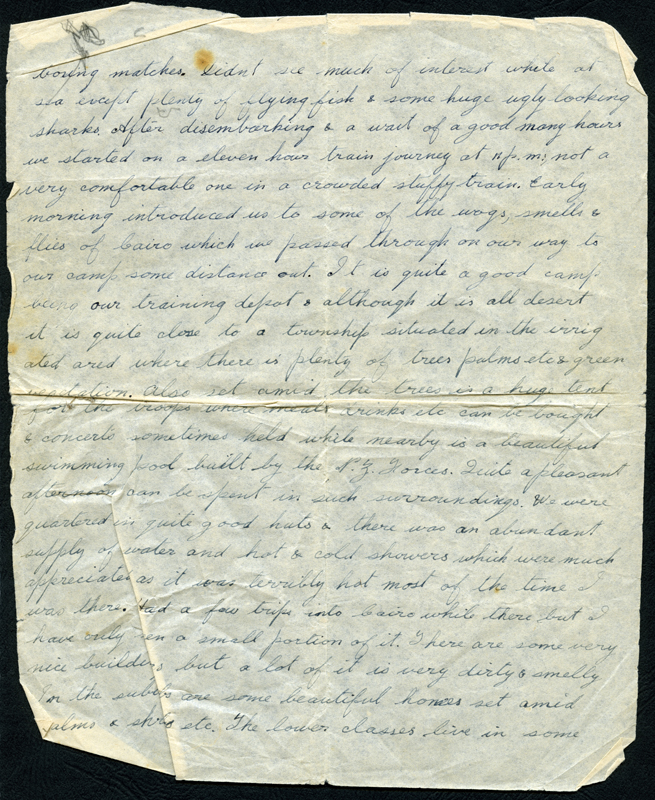 boxing matches. Didnt see much of interest while at
sea except plenty of flying fish & some huge ugly looking
sharks. After disembarking & a wait of a good many hours
we started on a eleven hour train journey at 11 p.m. not a
very comfortable one in a crowded stuffy train. Early
morning introduced us to some of the wogs, smells &
flies of Cairo which we passed through on our way to
our camp some distance out. It is quite a good camp
being our training depot & although it is all desert
it is quite close to a township situated in the irrig
ated area where there is plenty of trees palms etc & green
vegetation. Also set amid the trees is a huge tent
for the troops where meals drinks etc can be bought
& concerts sometimes held while nearby is a beautiful
swimming pool built by the N.Z. Forces. Quite a pleasant
afternoon can be spent in such surroundings. We were
quartered in quite good huts & there was an abundant
supply of water and hot & cold showers which were much
appreciated as it was terribly hot most of the time I
was there. Had a few trips into Cairo while there but I
have only seen a small portion of it. There are some very
nice buildings but a lot of it is very dirty & smelly
In the suburbs are some beautiful homes set amid
palms & etc. The lower classes live in some